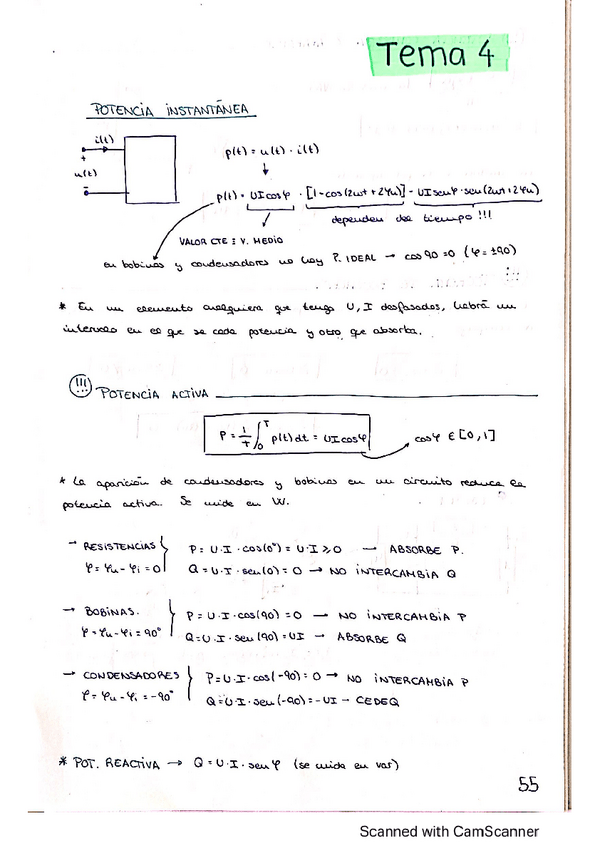 Tema 4
POTENCIA INSTANTÁNEA
i(t)
+
u(t)
-
p(t) = u(t) · i(t)
p(t) = UI cosφ · [1-cos(2ωt + 2φu)] - UI senφ · sen(2ωt + 2φu)
dependen del tiempo !!!
VALOR CTE = V. MEDIO
en bobinas y condensadores no hay P. IDEAL → cos 90 = 0 (φ = ±90)
* En un elemento cualquiera que tenga U, I desfasados, habrá un
intervalo en el que se ceda potencia y otro que absorba.
(!!!) POTENCIA ACTIVA
P = 1/T ∫₀ᵀ p(t) dt = UI cosφ
cosφ ∈ [0,1]
* La aparición de condensadores y bobinas en un circuito reduce la
potencia activa. Se mide en W.
→ RESISTENCIAS } P = U·I·cos(0°) = U·I ≥ 0 → ABSORBE P.
φ = φu - φi = 0 Q = U·I·sen(0) = 0 → NO INTERCAMBIA Q
→ BOBINAS. } P = U·I·cos(90) = 0 → NO INTERCAMBIA P
φ = φu - φi = 90° Q = U·I·sen(90) = UI → ABSORBE Q
→ CONDENSADORES } P = U·I·cos(-90) = 0 → NO INTERCAMBIA P
φ = φu - φi = -90° Q = U·I·sen(-90) = -UI → CEDE Q
* POT. REACTIVA → Q = U·I·senφ (se mide en var)
55
Scanned with CamScanner